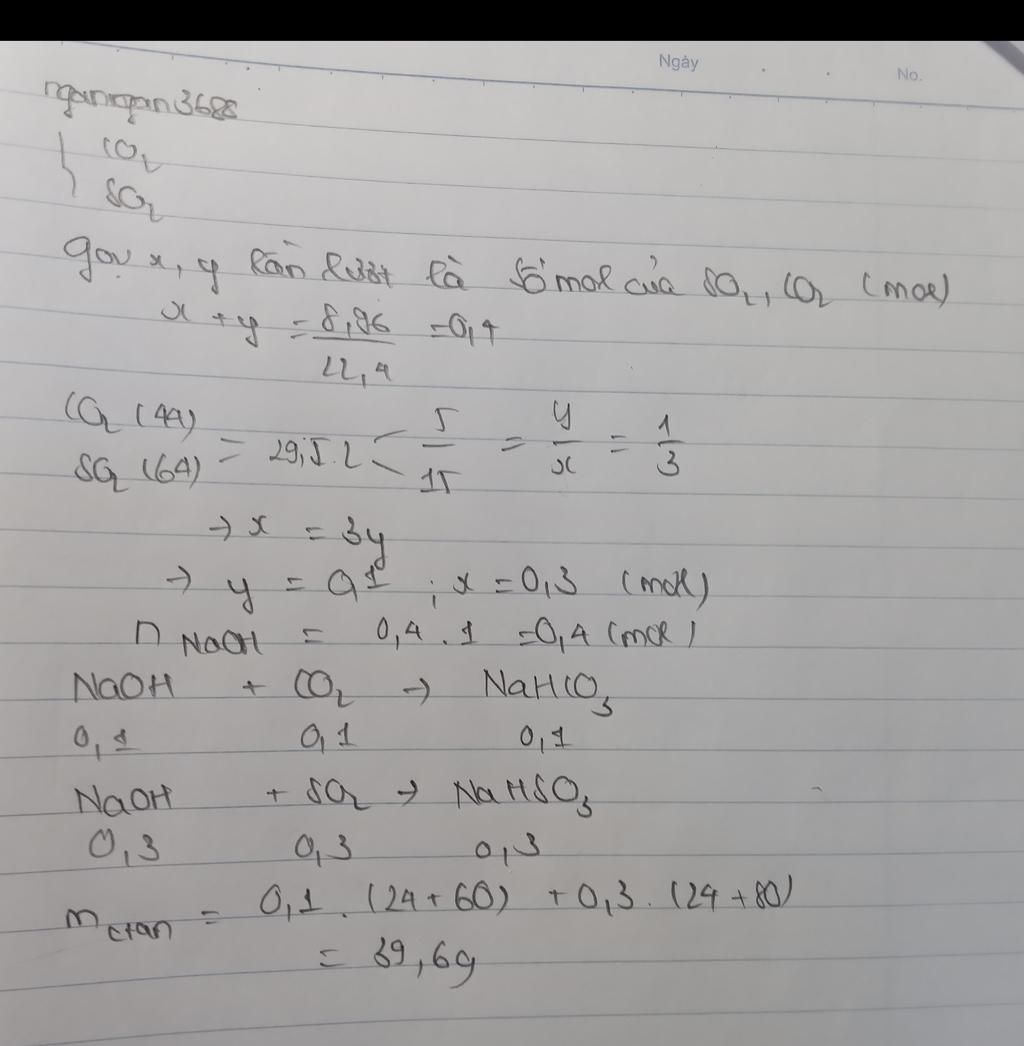 Ngày
No.
nganngan3688
CO2
SO2
gọi x, y lần lượt là số mol của SO2, CO2 (mol)
x + y = 8,96 / 22,4 = 0,4
CO2 (44)
SO2 (64) = 29,5.2 < 5 / 15 = y / x = 1 / 3
→ x = 3y
→ y = 0,1 ; x = 0,3 (mol)
n NaOH = 0,4 . 1 = 0,4 (mol)
NaOH + CO2 → NaHCO3
0,1 0,1 0,1
NaOH + SO2 → NaHSO3
0,3 0,3 0,3
m ctan = 0,1 . (24 + 60) + 0,3 . (24 + 80)
= 39,6g